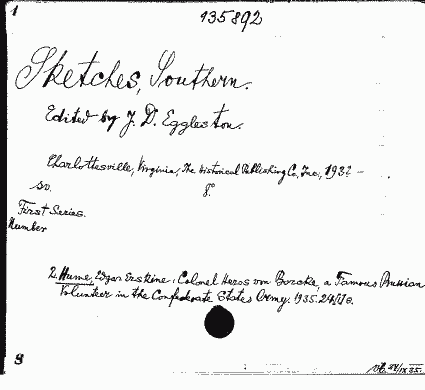 1
135892
Sketches, Southern.
Edited by J. D. Eggleston.
Charlottesville, Virginia, The historical Publishing Co., Inc., 193? –
8°
First Series.
Number
2. Hume, Edgar Erskine: Colonel Heros von Borcke, a Famous Prussian
Volunteer in the Confederate States Army. 1935.